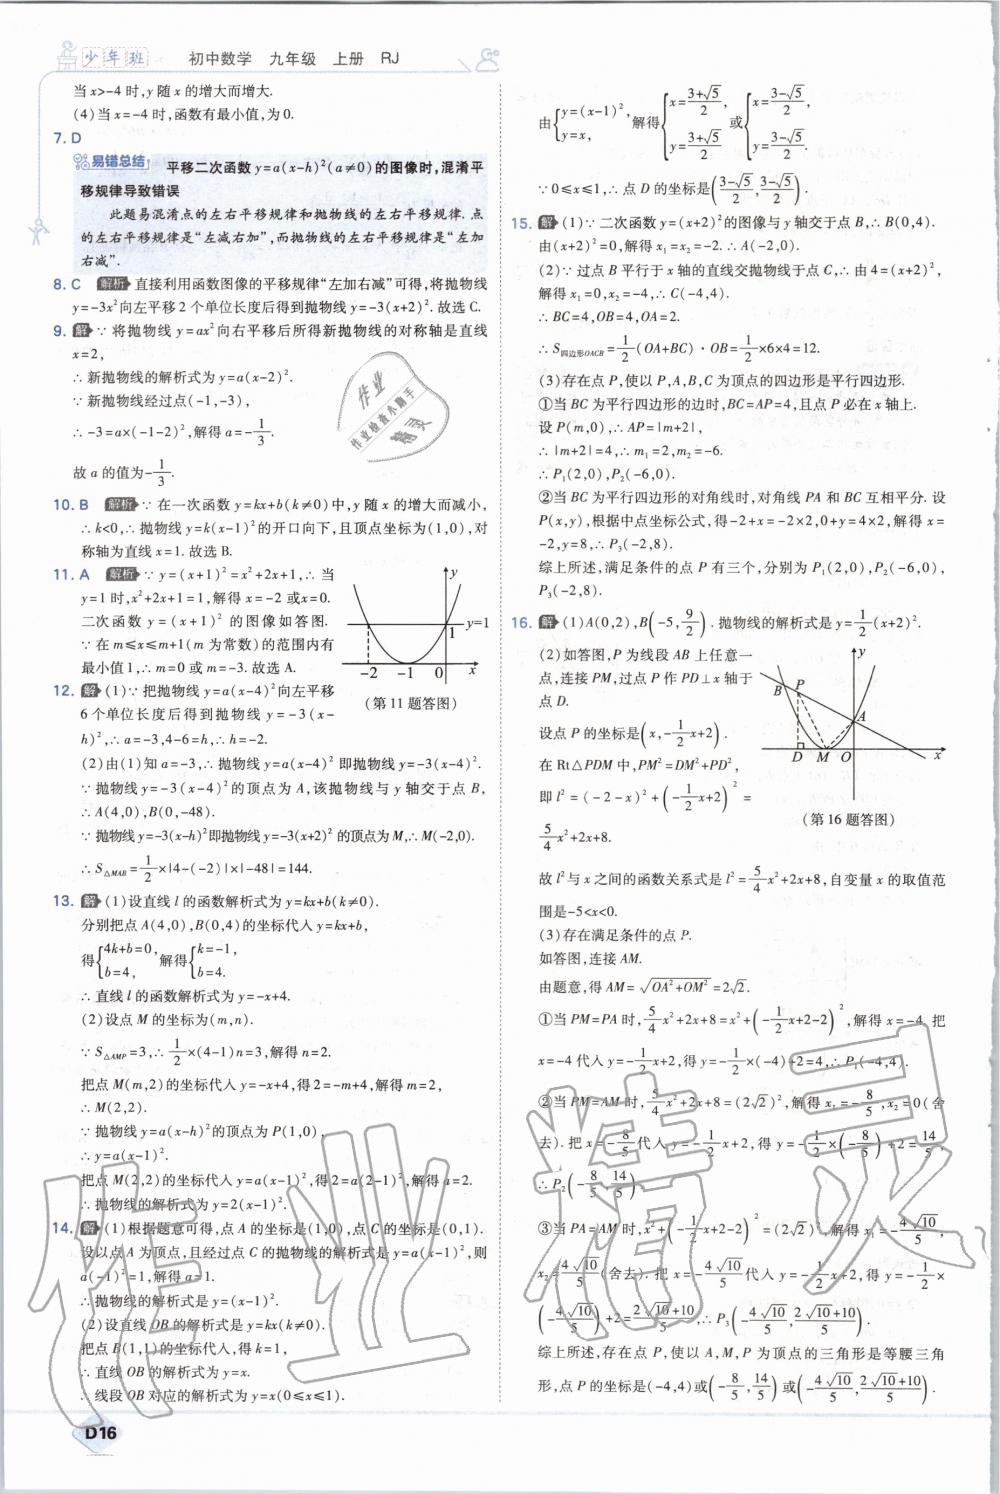 少年班 初中数学 九年级 上册 RJ
当 x>-4 时,y 随 x 的增大而增大.
(4)当 x=-4 时,函数有最小值,为 0.
7. D
易错总结 平移二次函数 y=a(x-h)²(a≠0)的图像时,混淆平
移规律导致错误
此题易混淆点的左右平移规律和抛物线的左右平移规律.点
的左右平移规律是“左减右加”,而抛物线的左右平移规律是“左加
右减”.
8. C 解析 直接利用函数图像的平移规律“左加右减”可得,将抛物线
y=-3x²向左平移 2 个单位长度后得到抛物线 y=-3(x+2)².故选 C.
9. 解 ∵ 将抛物线 y=ax²向右平移后所得新抛物线的对称轴是直线
x=2,
∴ 新抛物线的解析式为 y=a(x-2)².
∵ 新抛物线经过点(-1,-3),
∴ -3=a×(-1-2)²,解得 a=-1/3.
故 a 的值为-1/3.
10. B 解析 ∵ 在一次函数 y=kx+b(k≠0)中,y 随 x 的增大而减小,
∴ k<0,∴ 抛物线 y=k(x-1)²的开口向下,且顶点坐标为(1,0),对
称轴为直线 x=1.故选 B.
11. A 解析 ∵ y=(x+1)²=x²+2x+1,∴ 当
y=1 时,x²+2x+1=1,解得 x=-2 或 x=0.
二次函数 y=(x+1)² 的图像如答图.
∵ 在 m≤x≤m+1(m 为常数)的范围内有
最小值 1,∴ m=0 或 m=-3.故选 A.
y
y=1
1
-2 -1 0 x
(第 11 题答图)
12. 解 (1)∵ 把抛物线 y=a(x-4)²向左平移
6 个单位长度后得到抛物线 y=-3(x-
h)²,∴ a=-3,4-6=h,∴ h=-2.
(2)由(1)知 a=-3,∴ 抛物线 y=a(x-4)² 即抛物线 y=-3(x-4)².
∵ 抛物线 y=-3(x-4)²的顶点为 A,该抛物线与 y 轴交于点 B,
∴ A(4,0),B(0,-48).
∵ 抛物线 y=-3(x-h)²即抛物线 y=-3(x+2)² 的顶点为 M,∴ M(-2,0).
∴ S△MAB=1/2×|4-(-2)|×|-48|=144.
13. 解 (1)设直线 l 的函数解析式为 y=kx+b(k≠0).
分别把点 A(4,0),B(0,4)的坐标代入 y=kx+b,
得{4k+b=0, b=4, 解得{k=-1, b=4.
∴ 直线 l 的函数解析式为 y=-x+4.
(2)设点 M 的坐标为(m,n).
∵ S△AMP=3,∴ 1/2×(4-1)n=3,解得 n=2.
把点 M(m,2)的坐标代入 y=-x+4,得 2=-m+4,解得 m=2,
∴ M(2,2).
∵ 抛物线 y=a(x-h)²的顶点为 P(1,0),
∴ y=a(x-1)².
把点 M(2,2)的坐标代入 y=a(x-1)²,得 2=a(2-1)²,解得 a=2.
∴ 抛物线的解析式为 y=2(x-1)².
14. 解 (1)根据题意可得,点 A 的坐标是(1,0),点 C 的坐标是(0,1).
设以点 A 为顶点,且经过点 C 的抛物线的解析式是 y=a(x-1)²,则
a(-1)²=1,解得 a=1.
∴ 抛物线的解析式是 y=(x-1)².
(2)设直线 OB 的解析式是 y=kx(k≠0).
把点 B(1,1)的坐标代入,得 k=1,
∴ 直线 OB 的解析式为 y=x.
∴ 线段 OB 对应的解析式为 y=x(0≤x≤1).
由{y=(x-1)², y=x, 解得{x=(3+√5)/2, y=(3+√5)/2 或{x=(3-√5)/2, y=(3-√5)/2
∵ 0≤x≤1,∴ 点 D 的坐标是((3-√5)/2,(3-√5)/2).
15. 解 (1)∵ 二次函数 y=(x+2)²的图像与 y 轴交于点 B,∴ B(0,4).
由(x+2)²=0,解得 x₁=x₂=-2.∴ A(-2,0).
(2)∵ 过点 B 平行于 x 轴的直线交抛物线于点 C,∴ 由 4=(x+2)²,
解得 x₁=0,x₂=-4,∴ C(-4,4).
∴ BC=4,OB=4,OA=2.
∴ S四边形OACB=1/2(OA+BC)·OB=1/2×6×4=12.
(3)存在点 P,使以 P,A,B,C 为顶点的四边形是平行四边形.
①当 BC 为平行四边形的边时,BC=AP=4,且点 P 必在 x 轴上.
设 P(m,0),∴ AP=|m+2|,
∴ |m+2|=4,∴ m₁=2,m₂=-6.
∴ P₁(2,0),P₂(-6,0).
②当 BC 为平行四边形的对角线时,对角线 PA 和 BC 互相平分.设
P(x,y),根据中点坐标公式,得-2+x=-2×2,0+y=4×2,解得 x=
-2,y=8,∴ P₃(-2,8).
综上所述,满足条件的点 P 有三个,分别为 P₁(2,0),P₂(-6,0),
P₃(-2,8).
16. 解 (1)A(0,2),B(-5,9/2).抛物线的解析式是 y=1/2(x+2)².
(2)如答图,P 为线段 AB 上任意一
点,连接 PM,过点 P 作 PD⊥x 轴于
点 D.
设点 P 的坐标是(x,-1/2x+2).
在 Rt△PDM 中,PM²=DM²+PD²,
即 l²=(-2-x)²+(-1/2x+2)²=
5/4x²+2x+8.
y
B P
A
D M O x
(第 16 题答图)
故 l²与 x 之间的函数关系式是 l²=5/4x²+2x+8,自变量 x 的取值范
围是-5<x<0.
(3)存在满足条件的点 P.
如答图,连接 AM.
由题意,得 AM=√(OA²+OM²)=2√2.
①当 PM=PA 时,5/4x²+2x+8=x²+(-1/2x+2-2)²,解得 x=-4.把
x=-4 代入 y=-1/2x+2,得 y=-1/2×(-4)+2=4,∴ P₁(-4,4).
②当 PM=AM 时,5/4x²+2x+8=(2√2)²,解得 x₁=-8/5,x₂=0(舍
去).把 x=-8/5代入 y=-1/2x+2,得 y=-1/2×(-8/5)+2=14/5,
∴ P₂(-8/5,14/5).
③当 PA=AM 时,x²+(-1/2x+2-2)²=(2√2)²,解得 x₁=-4√10/5,
x₂=4√10/5(舍去).把 x=-4√10/5代入 y=-1/2x+2,得 y=-1/2×
(-4√10/5)+2=(2√10+10)/5,∴ P₃(-4√10/5,(2√10+10)/5).
综上所述,存在点 P,使以 A,M,P 为顶点的三角形是等腰三角
形,点 P 的坐标是(-4,4)或(-8/5,14/5)或(-4√10/5,(2√10+10)/5).
D16
作业
作业检查小助手
精灵
作业精灵